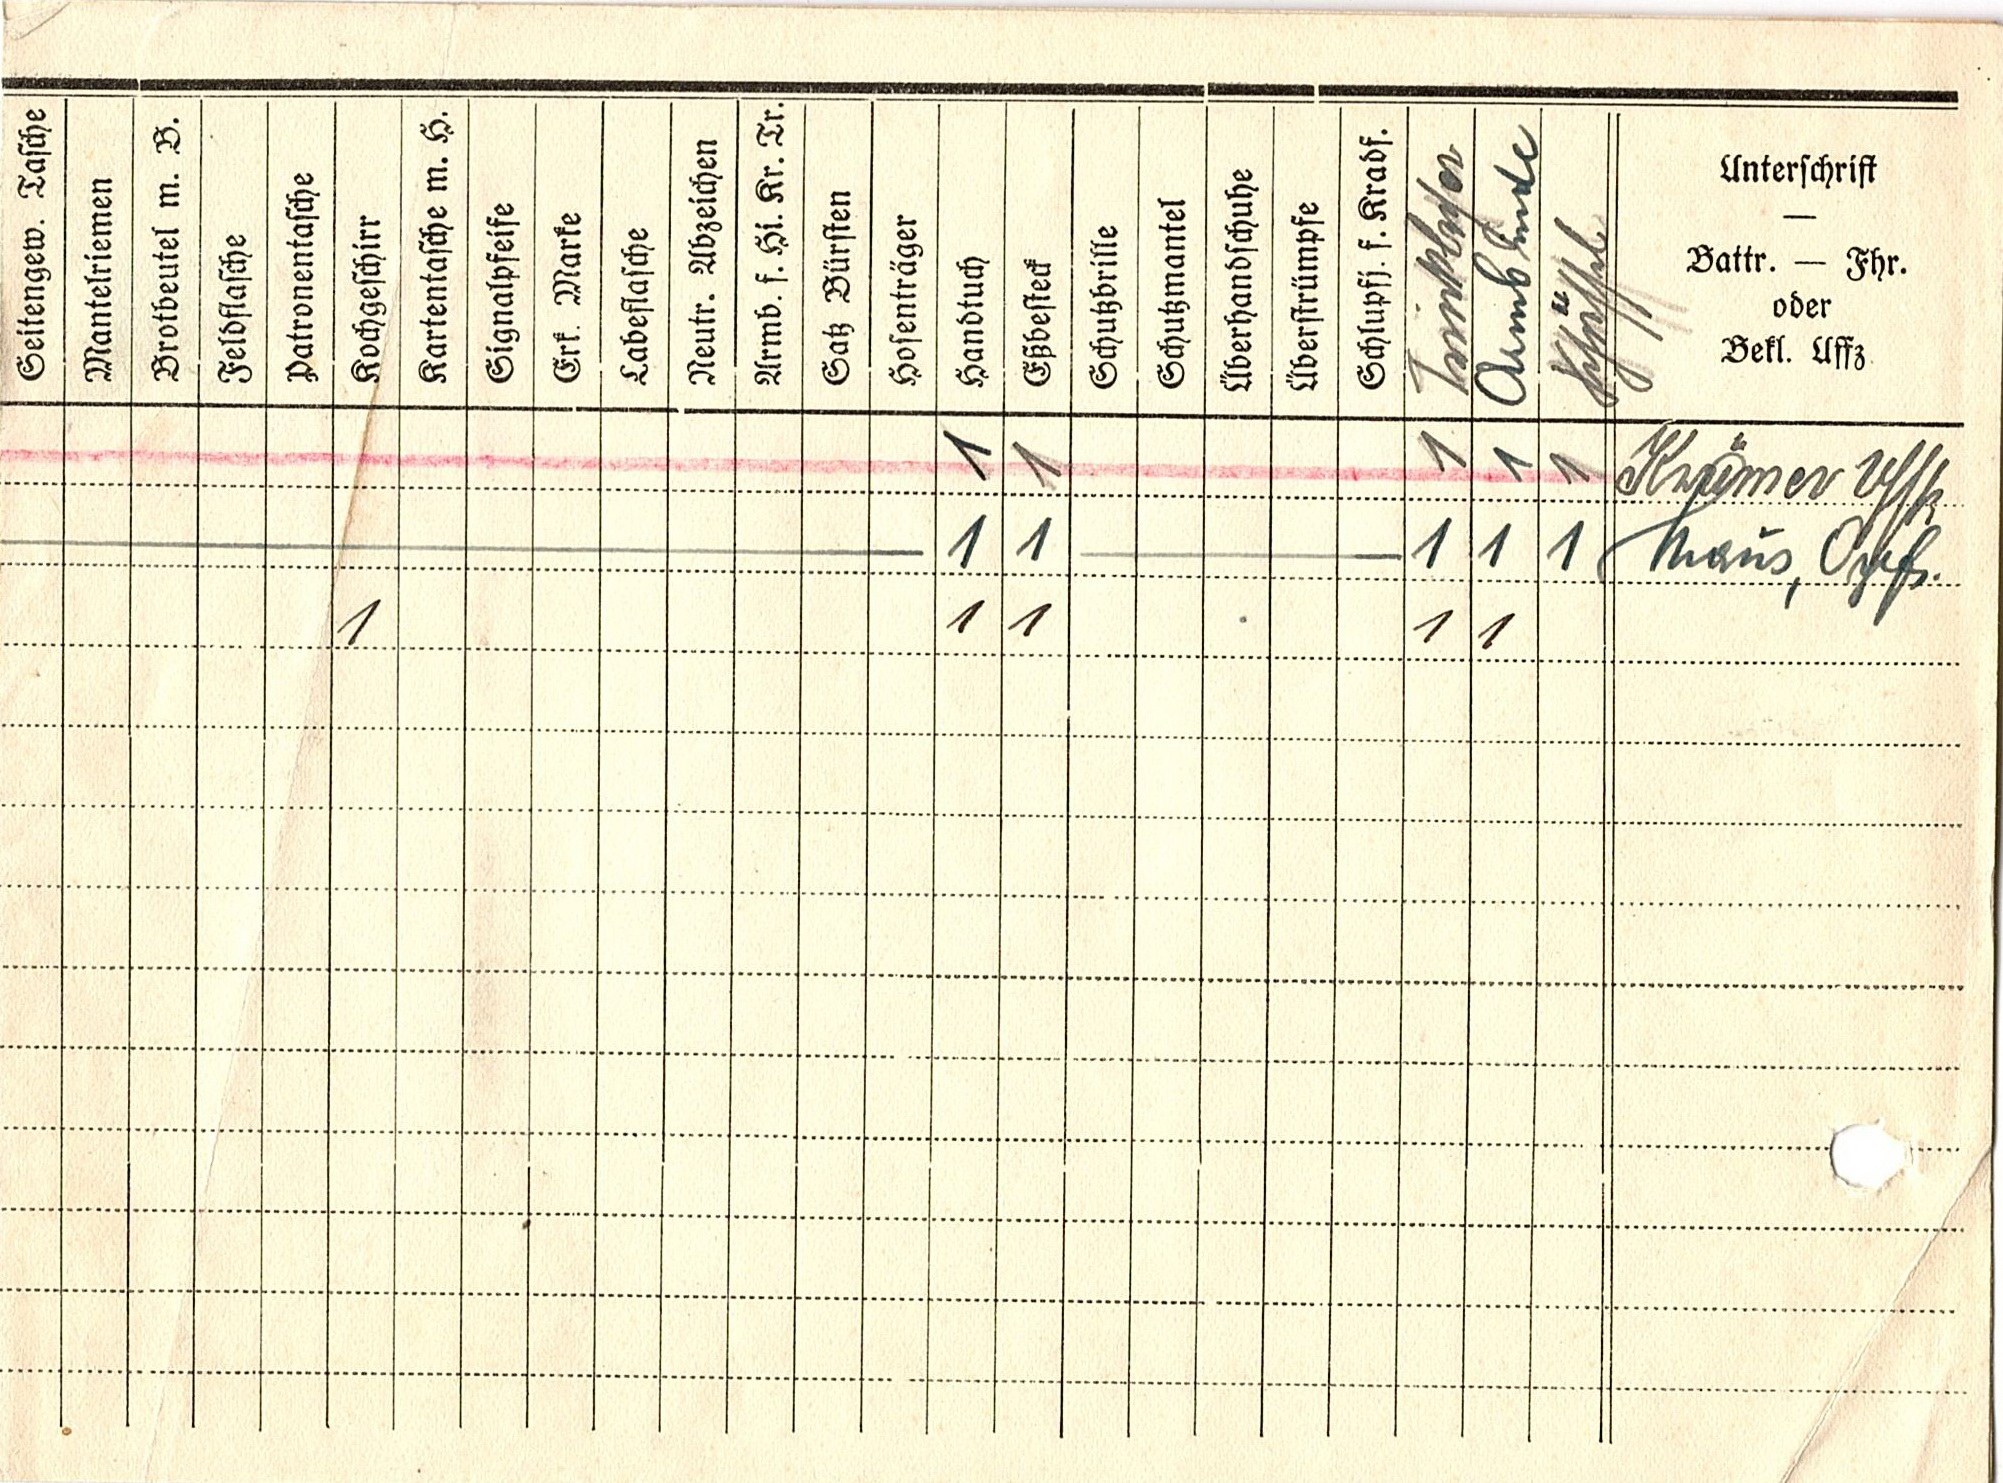 Seitengew. Tasche
Mantelriemen
Brotbeutel m. B.
Feldflasche
Patronentasche
Kochgeschirr
Kartentasche m. H.
Signalpfeife
Erk. Marke
Labeflasche
Neutr. Abzeichen
Armb. f. Hi. Kr. Tr.
Satz Bürsten
Hosenträger
Handtuch
Eßbesteck
Schutzbrille
Schutzmantel
Überhandschuhe
Überstrümpfe
Schlupfj. f. Kradf.
Trinkbecher
Armbinde
Unterschrift
—
Battr. — Fhr.
oder
Bekl. Uffz
1 1 1 1 1 Krämer
1 1 1 1 1
1 1 1 1 1